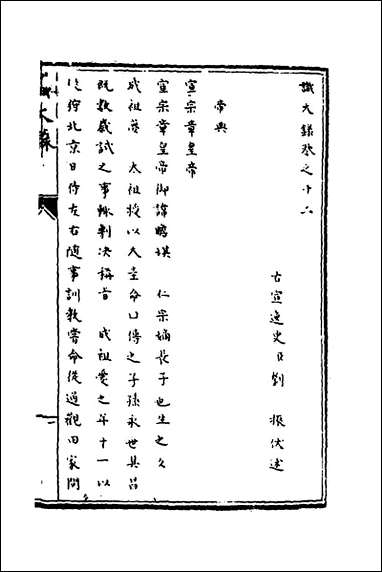 識大錄卷之十六
古宣逸史臣劉 振伏述
帝典
宣宗章皇帝
宣宗章皇帝御諱瞻璂 仁宗嫡長子也生之夕
成祖夢 太祖授以大圭命曰傳之子孫永世其昌
既數歲試之事輒剖決稱旨 成祖愛之年十一以
從狩北京日侍左右隨事訓教嘗命從過觀田家問
識大錄